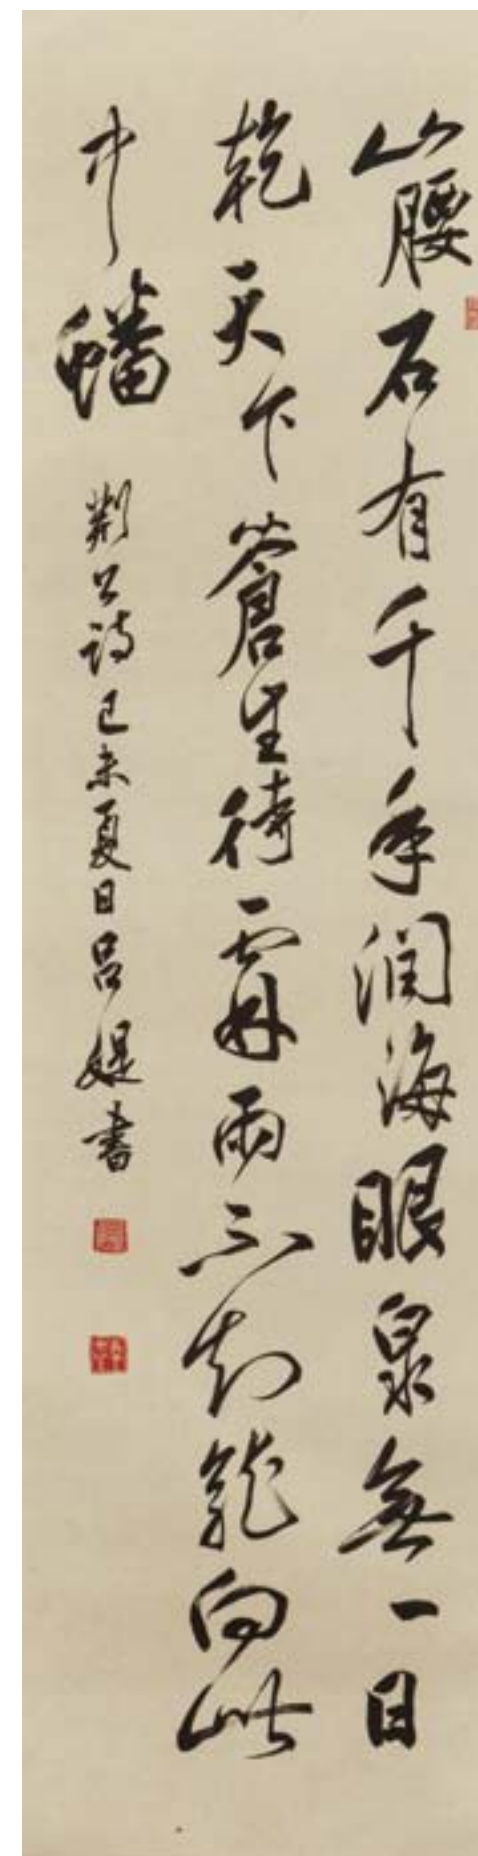 山腰石有千年潤海眼泉無一日
乾天下蒼生待霖雨不知龍向此
中蟠
荊公詩己未夏日呂媞書